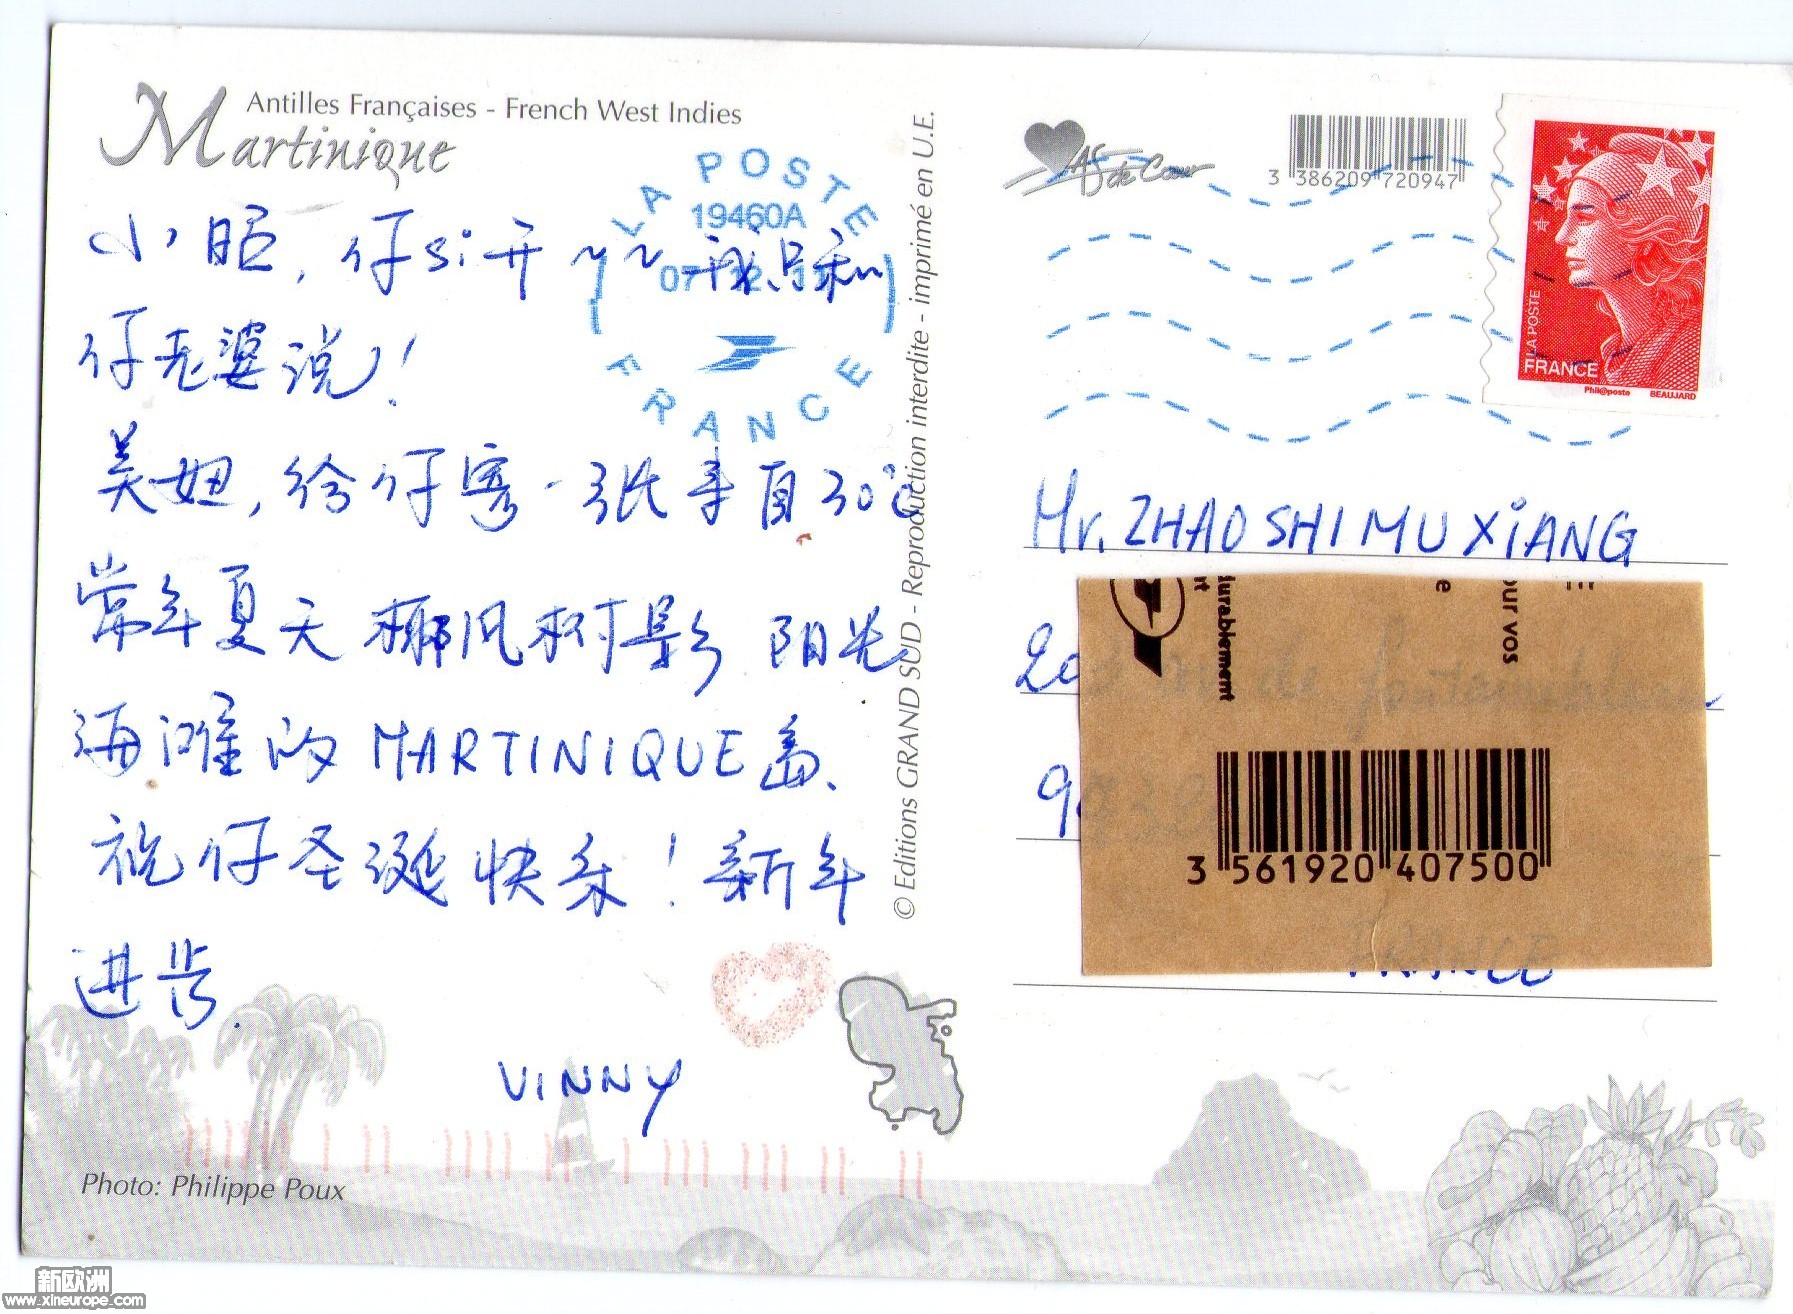 Antilles Françaises - French West Indies
Martinique
小昭，仔si开~~我只和
仔老婆说！
美妞，给仔寄一张来自30℃
常年夏天椰风树影 阳光
海滩的MARTINIQUE岛、
祝仔圣诞快乐！新年
进步.
VINNY
Photo: Philippe Poux
LA POSTE
19460A
07
FRANCE
© Editions GRAND SUD - Reproduction interdite - imprimé en U.E.
As de Cœur
3 386209 720947
LA POSTE
FRANCE
Phil@poste BEAUJARD
Mr. ZHAO SHI MU XiANG
de fontainebleau
durablement
our vos
3 561920 407500
FRANCE
新欧洲
www.xineurope.com